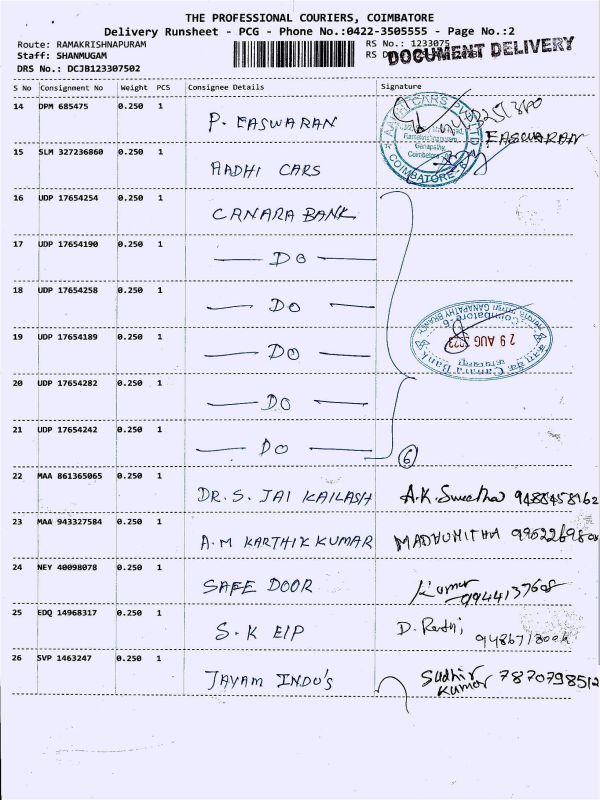 THE PROFESSIONAL COURIERS, COIMBATORE
Delivery Runsheet - PCG - Phone No.:0422-3505555 - Page No.:2
Route: RAMAKRISHNAPURAM RS No.: 1233075
Staff: SHANMUGAM RS D DOCUMENT DELIVERY
DRS No.: DCJB123307502
S No Consignment No Weight PCS Consignee Details Signature
14 DPM 685475 0.250 1 P. EASWARAN EASWARAN
15 SLM 327236860 0.250 1 AADHI CARS COIMBATORE
16 UDP 17654254 0.250 1 CANARA BANK
17 UDP 17654190 0.250 1 — DO —
18 UDP 17654258 0.250 1 — DO —
19 UDP 17654189 0.250 1 — DO — 29 AUG 2023 Canara Bank GANAPATHY BRANCH Coimbatore-6
20 UDP 17654282 0.250 1 — DO —
21 UDP 17654242 0.250 1 — DO — 6
22 MAA 861365065 0.250 1 DR. S. JAI KAILASH A.K. Swetha 9488458162
23 MAA 943327584 0.250 1 A.M KARTHIK KUMAR MADHUMITHA
24 NEY 40098078 0.250 1 SAFE DOOR Kumar 9944137608
25 EDQ 14968317 0.250 1 S.K EIP D. Rathi
26 SVP 1463247 0.250 1 JAYAM INDO'S Sudhir Kumar 7870798512